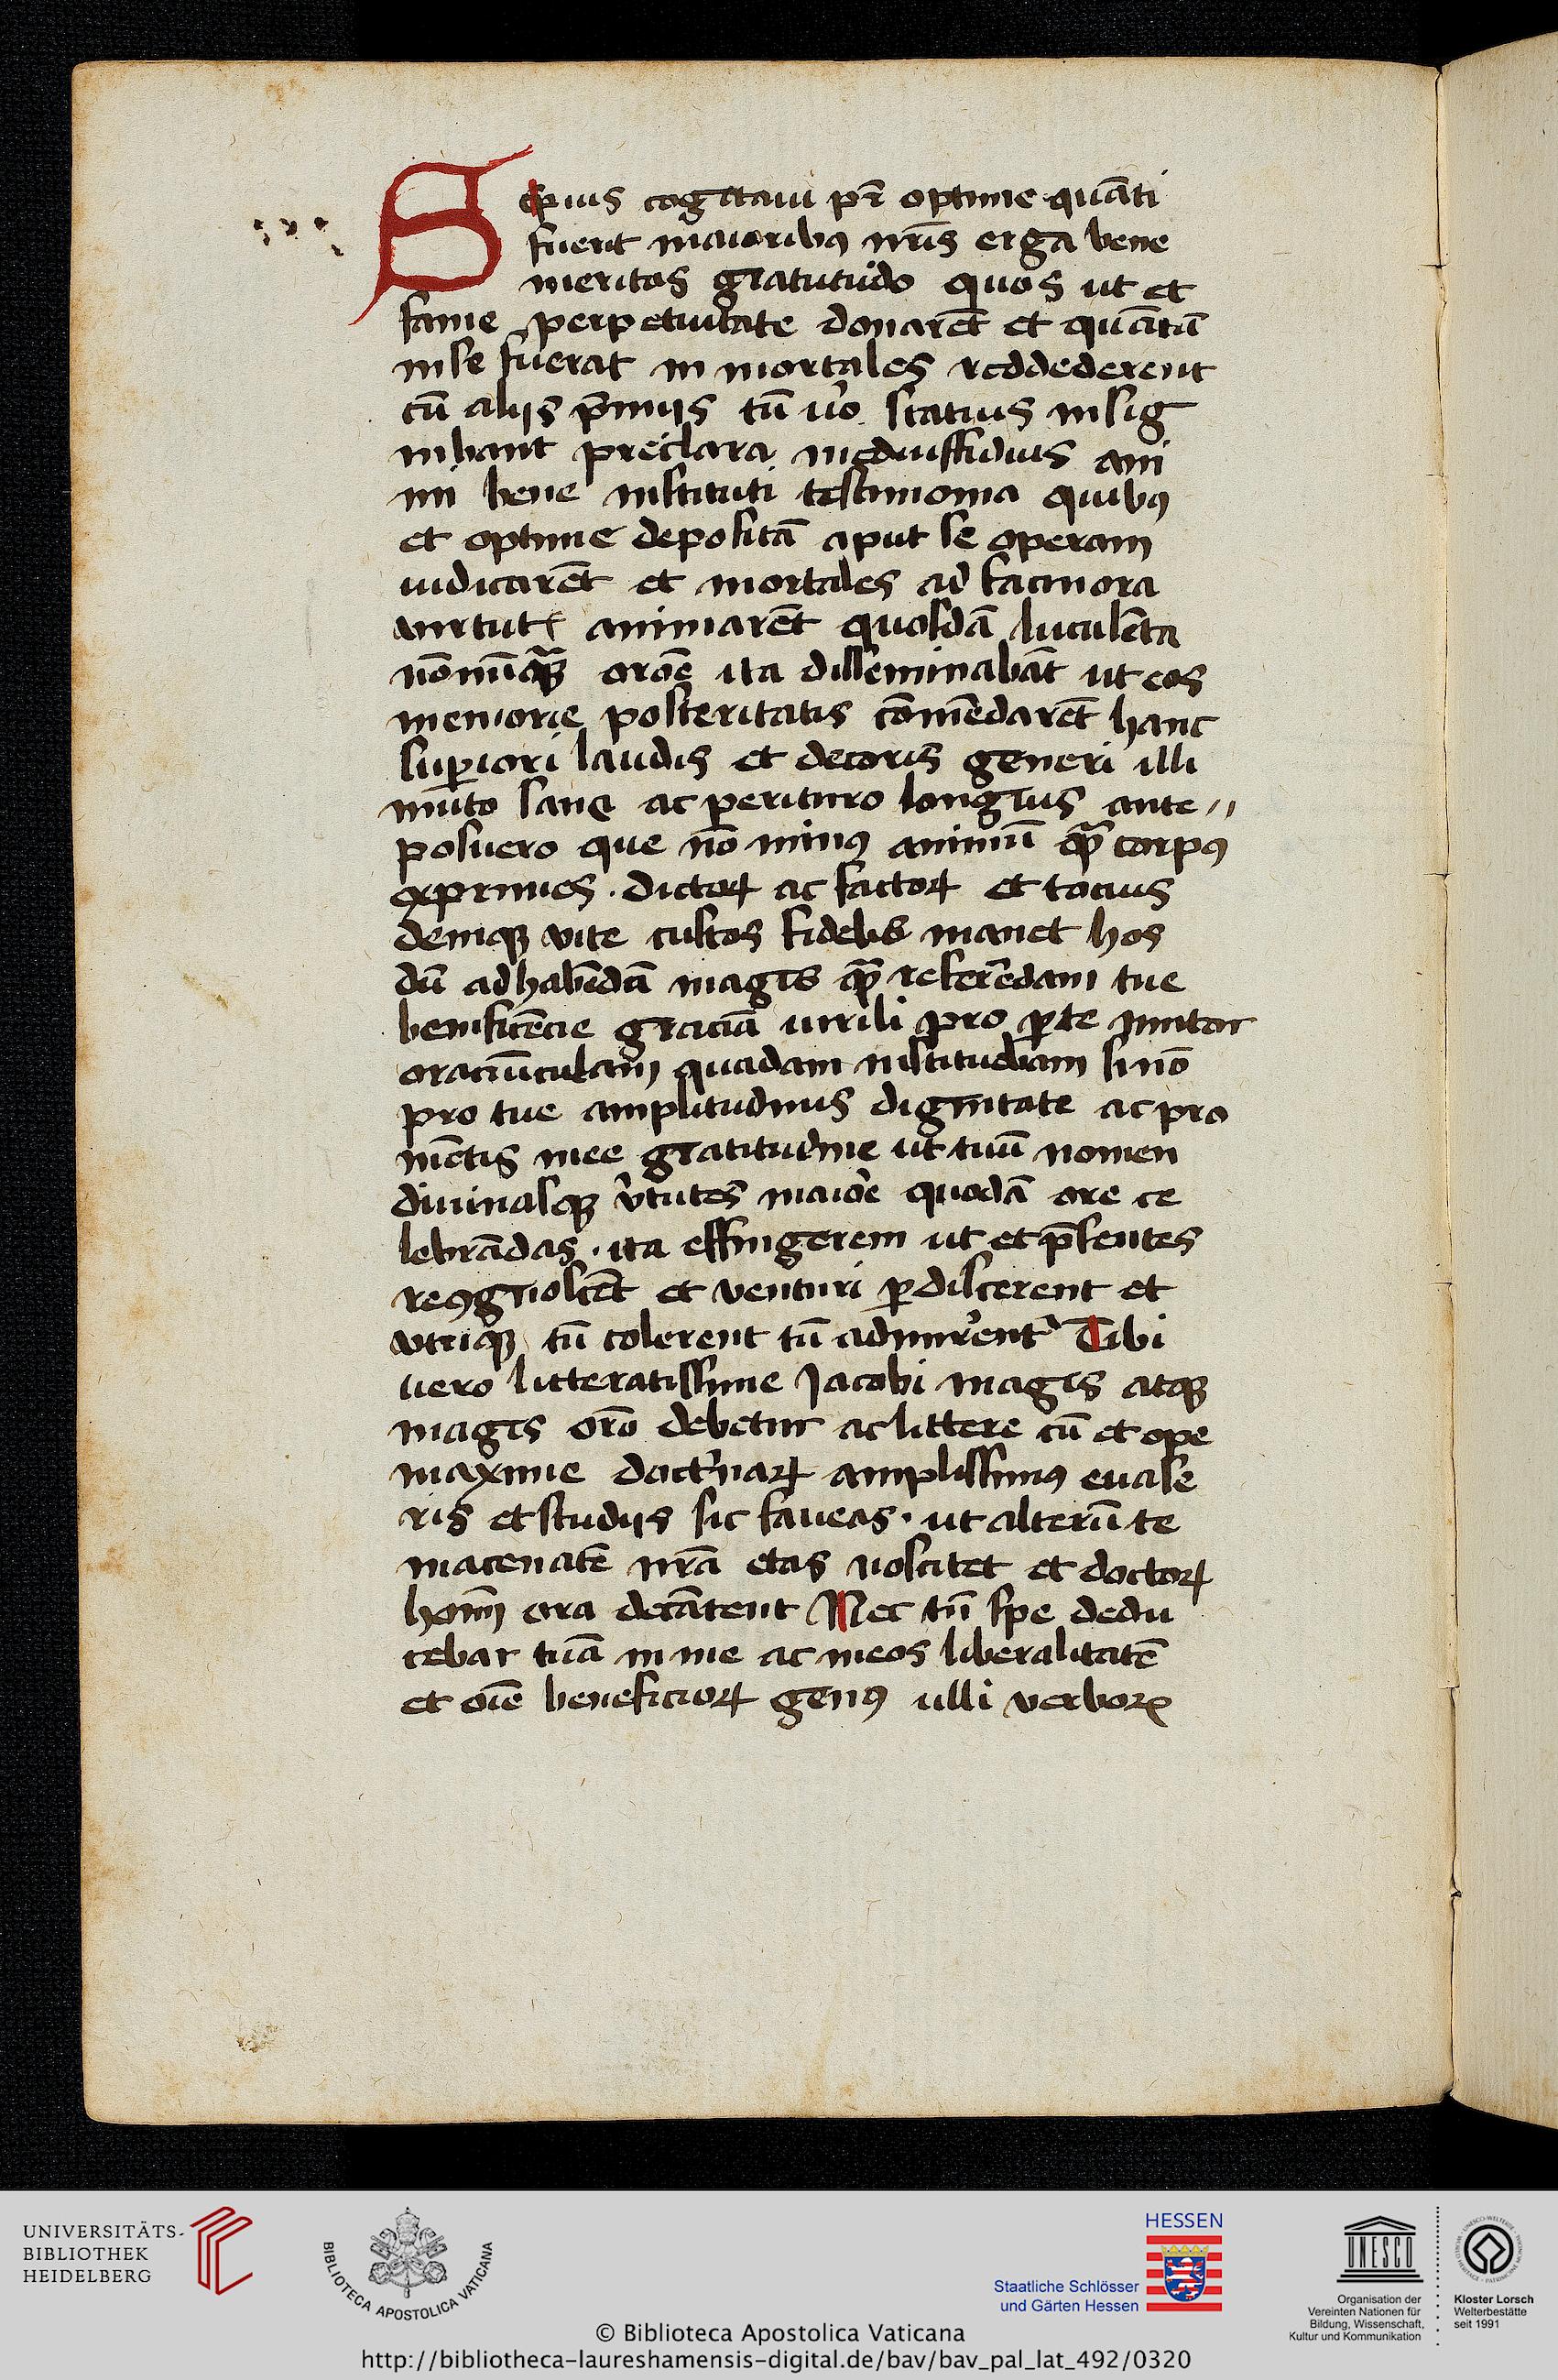 Sepius cogitaui pr̄ optime quāti
fuerit maioribꝰ nr̄is erga bene
meritos gratutudo quos ut et
fame perpetuitate donarēt et quātū
in se fuerat in mortales reddederent
cū alijs p̄mijs tū u̾o statuis insig
nibant preclara mediussidius ani
mi bene instituti testimonia quibꝰ
et optime depositā aput se operam
iudicarēt et mortales ad facinora
uirtutꝭ animarēt quosdā luculēta
nōnūqᷓꝫ oroē ita disseminabāt ut eos
memorie posteritatis cōmēdarēt hanc
suꝑiori laudis et decoris generi illi
muto sane ac perituro longius ante〃
posuero que nō minꝰ animū qᷓꝫ corpꝰ
exprimes · dictoꝝ ac factoꝝ et tocius
deniqꝫ vite custos fidelis manet hos
dū ad habēdā magis qᷓꝫ referēdam tue
benificēcie graciā uirili pro ꝑte imitor
oraciūculam quadam instituebam si nō
pro tue amplitudinis dignitate ac pro
mētis mee gratitudine ut tuū nomen
diuinasqꝫ v̾tutes maiore quodā ore ce
lebrādas · ita effingerem ut et p̄sentes
recꝯgnoscēt et venturi ꝑdiscerent et
vtriqꝫ tū colerent tū admirēnt᷑ Tibi
uero litteratissime Jacobi magis atqꝫ
magis orō debetur ac littere cū et ope
maxime doctʳinaꝝ amplissimꝰ euase
ris et studijs sic faueas · ut alterū te
macenatē nr̄ā etas noscitet et doctoꝝ
hoīm ora decātent Nec tn̄ spe dedu
cebar tuā in me ac meos liberalitatē
et oīe beneficioꝝ genꝰ ulli verboꝝ
UNIVERSITÄTS-
BIBLIOTHEK
HEIDELBERG
BIBLIOTECA APOSTOLICA VATICANA
HESSEN
Staatliche Schlösser
und Gärten Hessen
UNESCO
Organisation der
Vereinten Nationen für
Bildung, Wissenschaft,
Kultur und Kommunikation
Kloster Lorsch
Welterbestätte
seit 1991
© Biblioteca Apostolica Vaticana
http://bibliotheca-laureshamensis-digital.de/bav/bav_pal_lat_492/0320